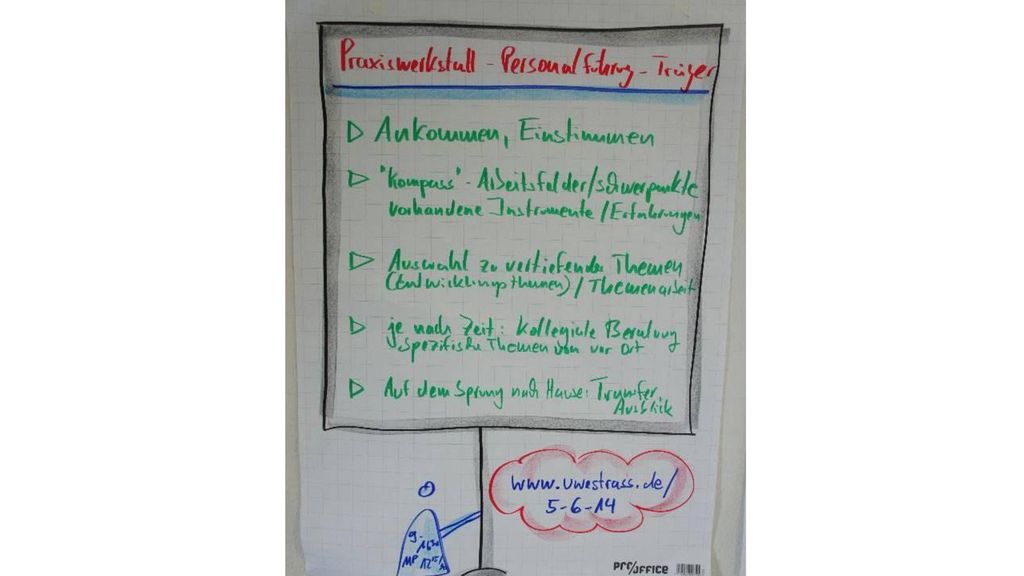 Praxiswerkstatt - Personalführung - Träger
Ankommen, Einstimmen
"Kompass" - Arbeitsfelder/schwerpunkte
vorhandene Instrumente / Erfahrungen
Auswahl zu vertiefender Themen
(Entwicklungsthemen) / Themenarbeit
je nach Zeit: Kollegiale Beratung
spezifische Themen von vor Ort
Auf dem Sprung nach Hause: Transfer,
Ausblick
www.uwestrass.de/
5-6-14
9-
16³⁰
MP 12¹⁵
pro/office